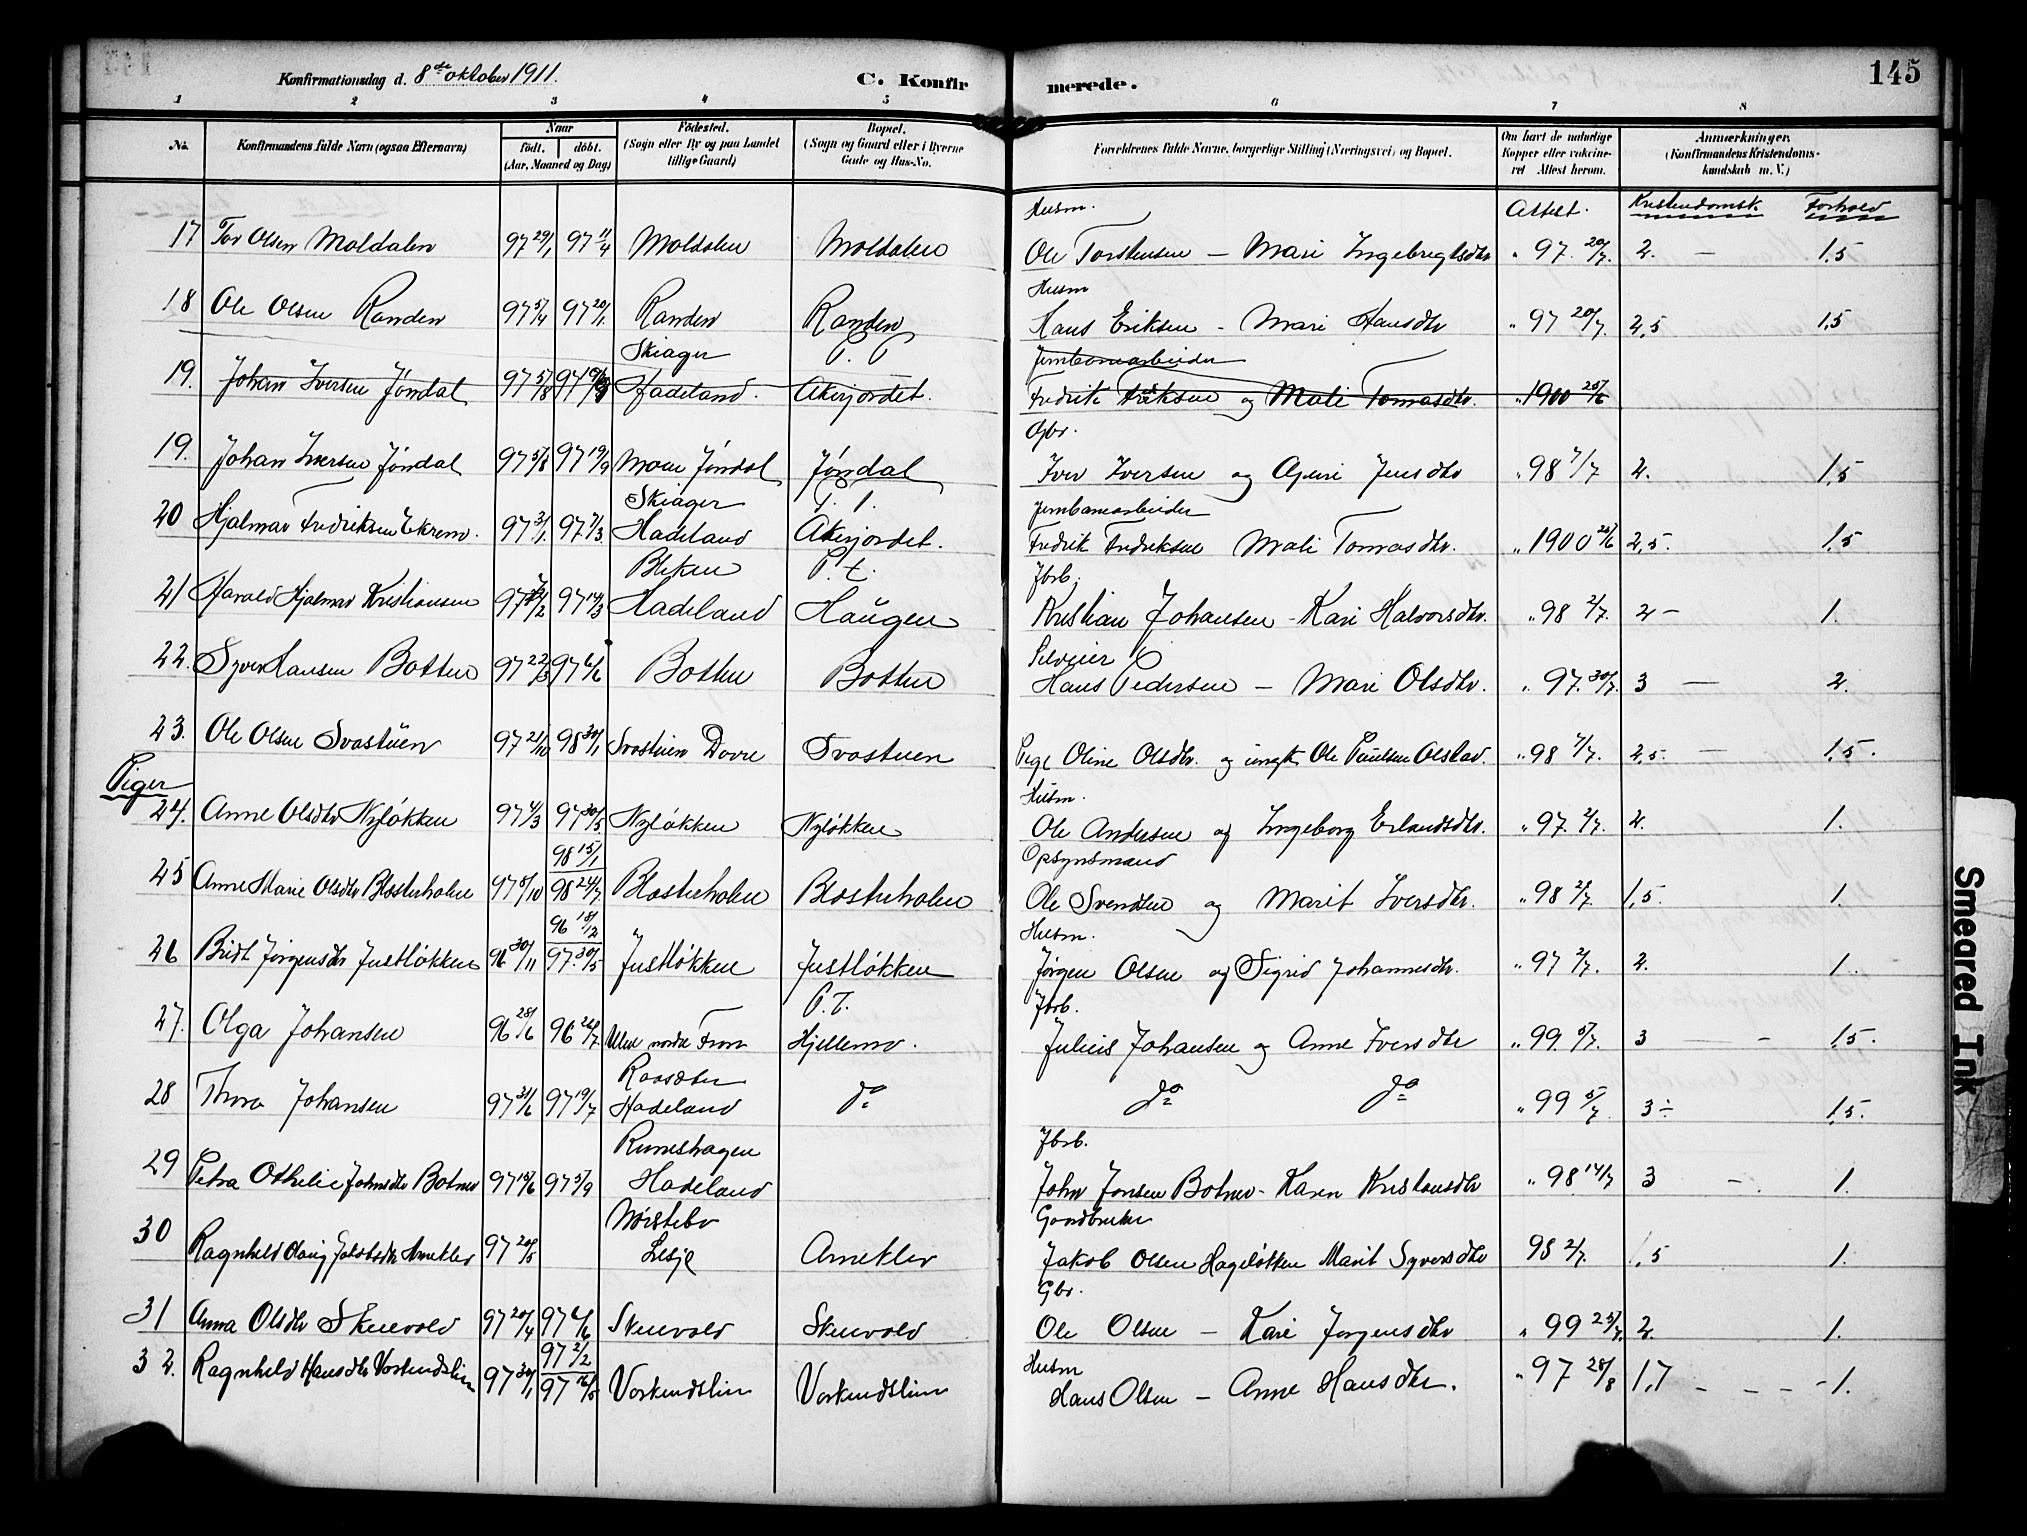 Konfirmationsdag d. 8de oktober 1911.
C. Konfir
merede.
145
1 2 3 4 5 6 7 8
No.
Konfirmandens fulde Navn (ogsaa Efternavn)
Naar
født. døbt.
(Aar, Maaned og Dag)
Fødested.
(Sogn eller By og paa Landet
tillige Gaard)
Bopæl.
(Sogn og Gaard eller i Byerne
Gade og Hus-No.
Forældrenes fulde Navne, borgerlige Stilling (Næringsvei) og Bopæl.
Om havt de naturlige
Kopper eller vakcine-
ret Attest herom.
Anmærkninger.
(Konfirmandens Kristendoms-
kundskab m. V.)
Husm. Attest. Kristendomsk. Forhold
17 Tor Olsen Moldalen 97 29/1 97 11/4 Moldalen Moldalen Ole Torstensen — Mari Ingebregtsdtr " 97 20/7. 2. — 1.5
Husm
18 Ole Olsen Randen 97 5/4 97 20/1. Randen Randen Hans Eriksen - Mari Hansdtr " 97 20/7. 2,5 1,5
Skiager P. T Jernbanearbeider
19. Johan Iversen Jøndal 97 5/8 Hadeland. Akerjordet. Fredrik Fredriksen og Mali Tomasdtr. " 1900 25/6
Gbr.
19. Johan Iversen Jøndal 97 5/8 97 19/9 Jøndal Jøndal Iver Iversen og Jensdtr " 98 7/7 2. 1,5
Skiager P. T. Jernbanearbeider
20 Hjalmar Fredriksen Ekrem. 97 3/1 97 7/3 Hadeland Akerjordet. Fredrik Fredriksen Mali Tomasdtr. " 1900 25/6 2,5. 1,5
Bleken P. t. Jbrb.
21 Harald Hjalmar Kristiansen 97 97 14/3 Hadeland Haugen Kristian Johansen - Kari Halvorsdtr. " 98 2/7. 2 — 1.
Selveier
22. Syver Hansen Botten 97 22/3 97 6/6 Botten Botten Hans Pedersen — Mari Olsdtr. " 97. 30/7. 3 — 2.
23. Ole Olsen Svastuen 97 21/10 98 30/1 Svastuen Dovre Svastuen Pige Oline Olsdtr. og ungk. Ole Paulsen Olstad. " 98 7/7. 2,5. — 1,5.
Piger
Husm.
24. Anne Olsdtr Nyløkken 97 4/3 97 30/5 Nyløkken Nyløkken Ole Andersen og Ingeborg Erlandsdtr. " 97. 2/7. 2. 1.
98 15/1 Opsynsmand
25 Anne Marie Olsdtr Blesterholen 97 5/10 98 24/7 Blesterholen Blesterholen Ole Svendsen og Marit Iversdtr. " 98 2/7. 1,5. 1.
96 18/12 Husm.
26 Bridt Jørgensdtr Justløkken 96 30/11 97. 30/5 Justløkken Justløkken Jørgen Olsen og Sigrid Johannesdtr. " 97 2/7. 2. 1.
P. T. Jbrb.
27. Olga Johansen 96 28/6 96 26/7 nordre Fron Hjellemo. Julius Johansen og Anne Iversdtr " 99. 5/7. 3 — - 1,5.
28 Thora Johansen 97 97 19/7 Hadeland do do do " 99 5/7. 3 - 1,5.
Runeshagen Jbrb.
29 Petra Othelie Johnsdtr Botner 97 15/6 97 5/9 Hadeland John Jonsen Botner - Karen Kristansdtr " 98 14/7 3 - 1.
Nørstebø Gaardbruker
30 Ragnhild Jakobsdtr Arneklev 97 20/5 Lesje Arneklev Jakob Olsen Hageløkken Marit Syversdtr 98 2/7. 1,5 1.
Gbr.
31 Anna Olsdtr Skuevold 97 20/4 97 6/6 Skuevold Skuevold Ole Olsen — Kari Jørgensdtr " 99 2. 1.
97 2/2 Husm
32. Ragnhild Hansdtr Vorkendslien 97 30/1 97 16/5 Vorkendslien Vorkendslien Hans Olsen — Anne Hansdtr. " 97 28/8 1,7 - - - - 1.
Smeared Ink